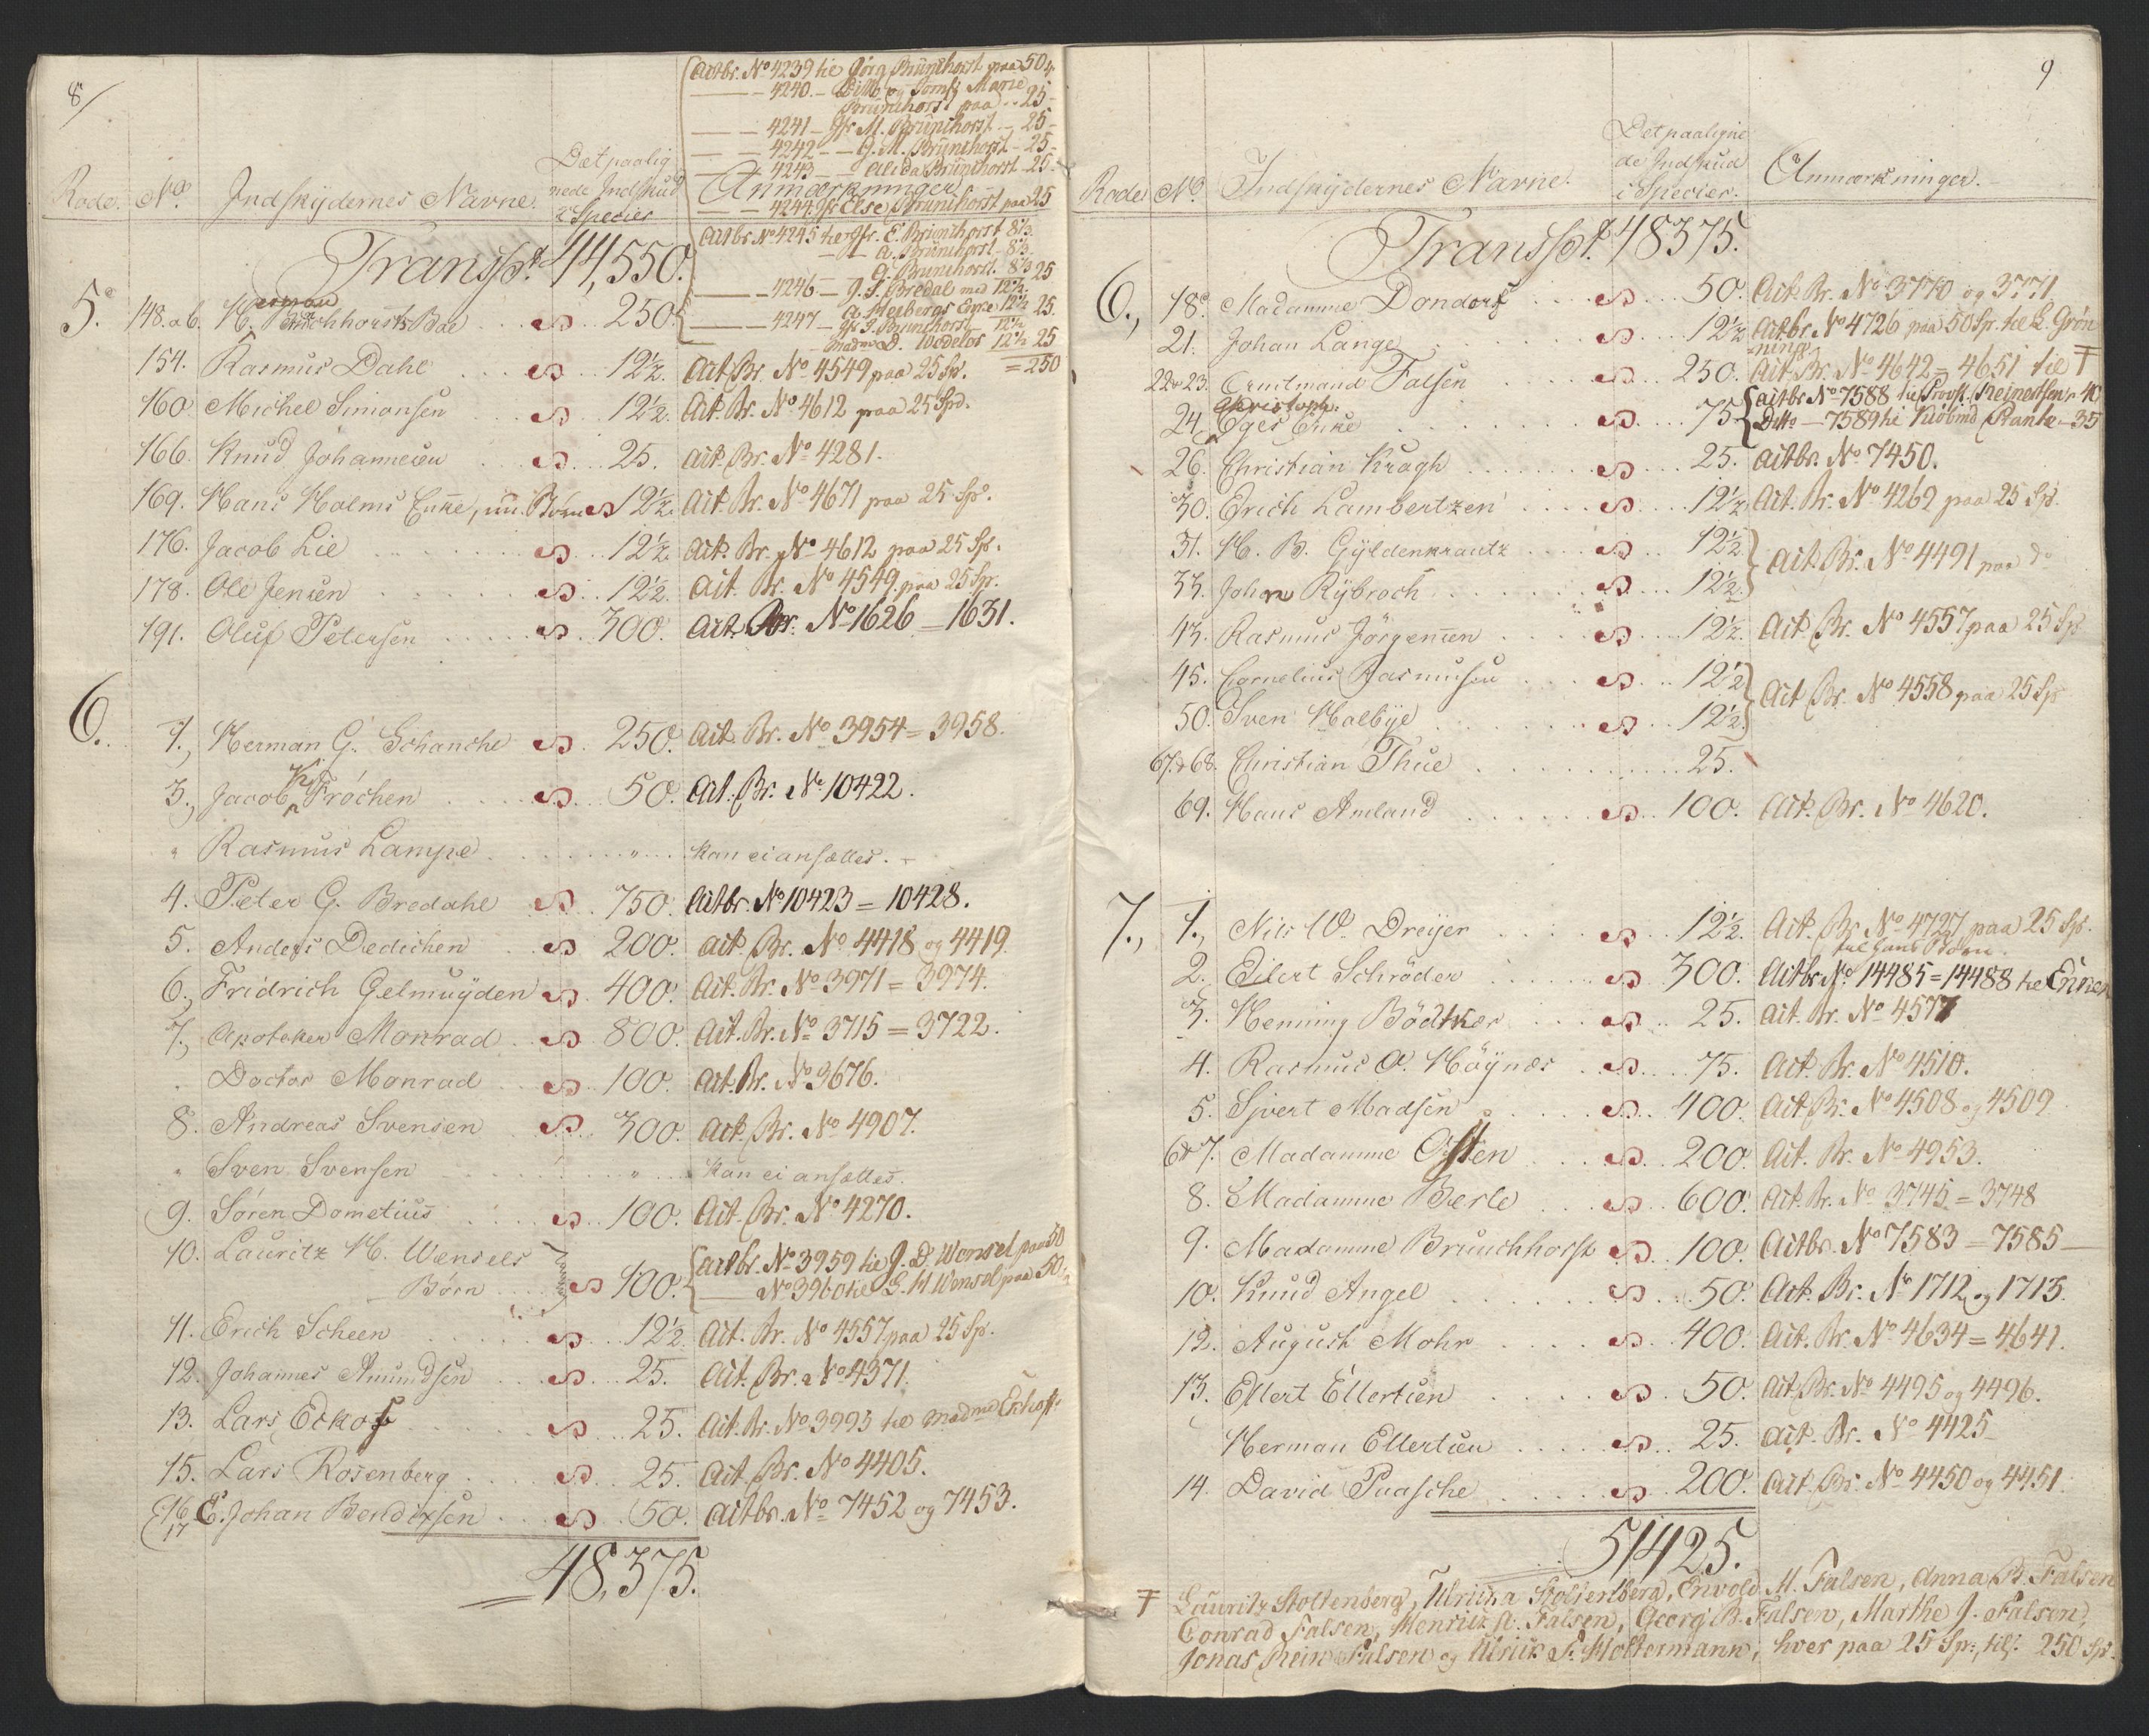 8/
Actbr. No 4239 til Jörg Brünchorst paa 50
4240. Ditto og Jomf. Marie
Brünchorst paa 25
4241 Jfr M. Brünchorst 25
4242 J. M. Brünchorst 25
4243 Alida Brünchorst 25
Rode. No. Indskydernes Navne. Det paalig
nede Indskud
i Species Anmærkninger
4244 Jfr Else Brünchorst paa 25
Transpt. 44,550.
Actbr No 4245 til Jfr. E. Brünchorst 8⅓
A. Brünchorst 8⅓
G. Brunchorst 8⅓ 25
4246 J. S. Bredal med 12½
A. Heibergs Enke 12½ 25.
4247 Jfr J. Brunchorst 12½
Madm D. Wedelor 12½ 25
= 250
5. 148. ab. H. Bruchhorsts Boe 250.
154. Rasmus Dahl 12½. Act. Br. No 4549 paa 25 Sp.
160 Michel Simonsen 12½. Act. Br. No 4612 paa 25 Spd.
166. Knud Johannesen 25. Act. Br. No 4281.
169. Hans Holms Enke, nu Börn 12½. Act. Br. No 4671 paa 25 Sp.
176. Jacob Lie 12½. Act. Br. No 4612 paa 25 Sp.
178. Ole Jensen 12½. Act. Br. No 4549 paa 25 Sp.
191. Oluf Petersen 300. Act. Br. No 1626 = 1631.
6. 1., Herman G. Schanche 250. Act. Br. No 3954 = 3958.
3., Jacob Kj Fröchen 50. Act. Br. No 10422.
" Rasmus Lampe " Kan ei ansættes.
4. Peter G. Bredahl 750. Actbr. No 10423 = 10428.
5. Anders Dedichen 200. Act. Br. No 4418 og 4419.
6., Fridrich Gelmuyden 400. Act. Br. No 3971 = 3974.
7., Apoteker Monrad 800. Act. Br. No 3715 = 3722.
Doctor Monrad 100. Act. Br. No 3676.
8. Andreas Svensen 300. Act. Br. No 4907.
" Sven Svensen " Kan ei ansættes.
9. Sören Dometius 100. Act. Br. No 4270.
10. Lauritz H. Wensels
Börn 100. Actbr. No 3959 til J. D. Wensel paa 50
No 3960 til G. H. Wensel paa 50
11. Erich Scheen 12½ Act. Br. No 4557 paa 25 Sp.
12. Johannes Amundsen 25. Act. Br. No 4371.
13. Lars Eckof 25. Act. Br. No 3993 til Madme Eckhoff
15. Lars Rosenberg 25. Act. Br. No 4405.
16
17 E. Johan Bendixsen 50. Actbr. No 7452 og 7453.
48,375.
9
Rode No. Indskydernes Navne. Det paaligne
de Indskud
i Species. Anmærkninger.
Transpt. 48375.
6., 18. Madamme Dondorf 50. Act. Br. No 3770 og 3771
21. Johan Lange 12½ Actbr. No 4726 paa 50 Sp. til L. Grön
ning
22 & 23. Amtmand Falsen 250. Act. Br. No 4642 = 4651 til Ŧ
24. Christoph. Eges Enke 75 Actbr. No 7588 til Provst. Reinertsen 40
Ditto 7589 til Kiöbmd Prante 35
26. Christian Kragh 25. Actbr. No 7450.
30. Erich Lambertzen 12½ Act. Br. No 4269 paa 25 Sp.
31. H. B. Gyldenkrantz 12½ Act. Br. No 4491 paa do
33. Johan Rybroch 12½
43. Rasmus Jörgensen 12½. Act. Br. No 4557 paa 25 Sp
45. Cornelius Rasmusen 12½ Act. Br. No 4558 paa 25 Sp
50. Sven Halbye 12½
67 & 68. Christian Thue 25.
69. Hans Amland 100. Act. Br. No 4620.
7., 1., Nils W. Dreyer 12½. Act. Br. No 4727 paa 25 Sp.
til hans Börn.
2. Eilert Schröder 300. Actbr. No 14485 = 14488 til Enken
3. Henning Bödtker 25. Act. Br. No 4577
4. Rasmus A. Höynes 75. Act. Br. No 4510.
5. Sjvert Madsen 400. Act. Br. No 4508 og 4509
6 & 7. Madamme Osten 200. Act. Br. No 4953.
8. Madamme Berle 600. Act. Br. No 3745 = 3748
9. Madamme Bruuchhorst 100. Actbr. No 7583 = 7585
10. Knud Angel 50. Act. Br. No 1712 og 1713.
12. August Mohr 400. Act. Br. No 4634 = 4641.
13. Ellert Ellertsen 50. Act. Br. No 4495 og 4496.
Herman Ellertsen 25. Act. Br. No 4425
14. David Paasche 200. Act. Br. No 4450 og 4451.
51425.
Ŧ Lauritz Stoltenberg, Ulricka Stoltenberg, Envold M. Falsen, Anna B. Falsen
Conrad Falsen, Henrik A. Falsen, Georg B. Falsen, Marthe J. Falsen,
Jonas Rein Falsen og Ulrick F. Holtermann, hver paa 25 Sp., tils. 250 Sp.